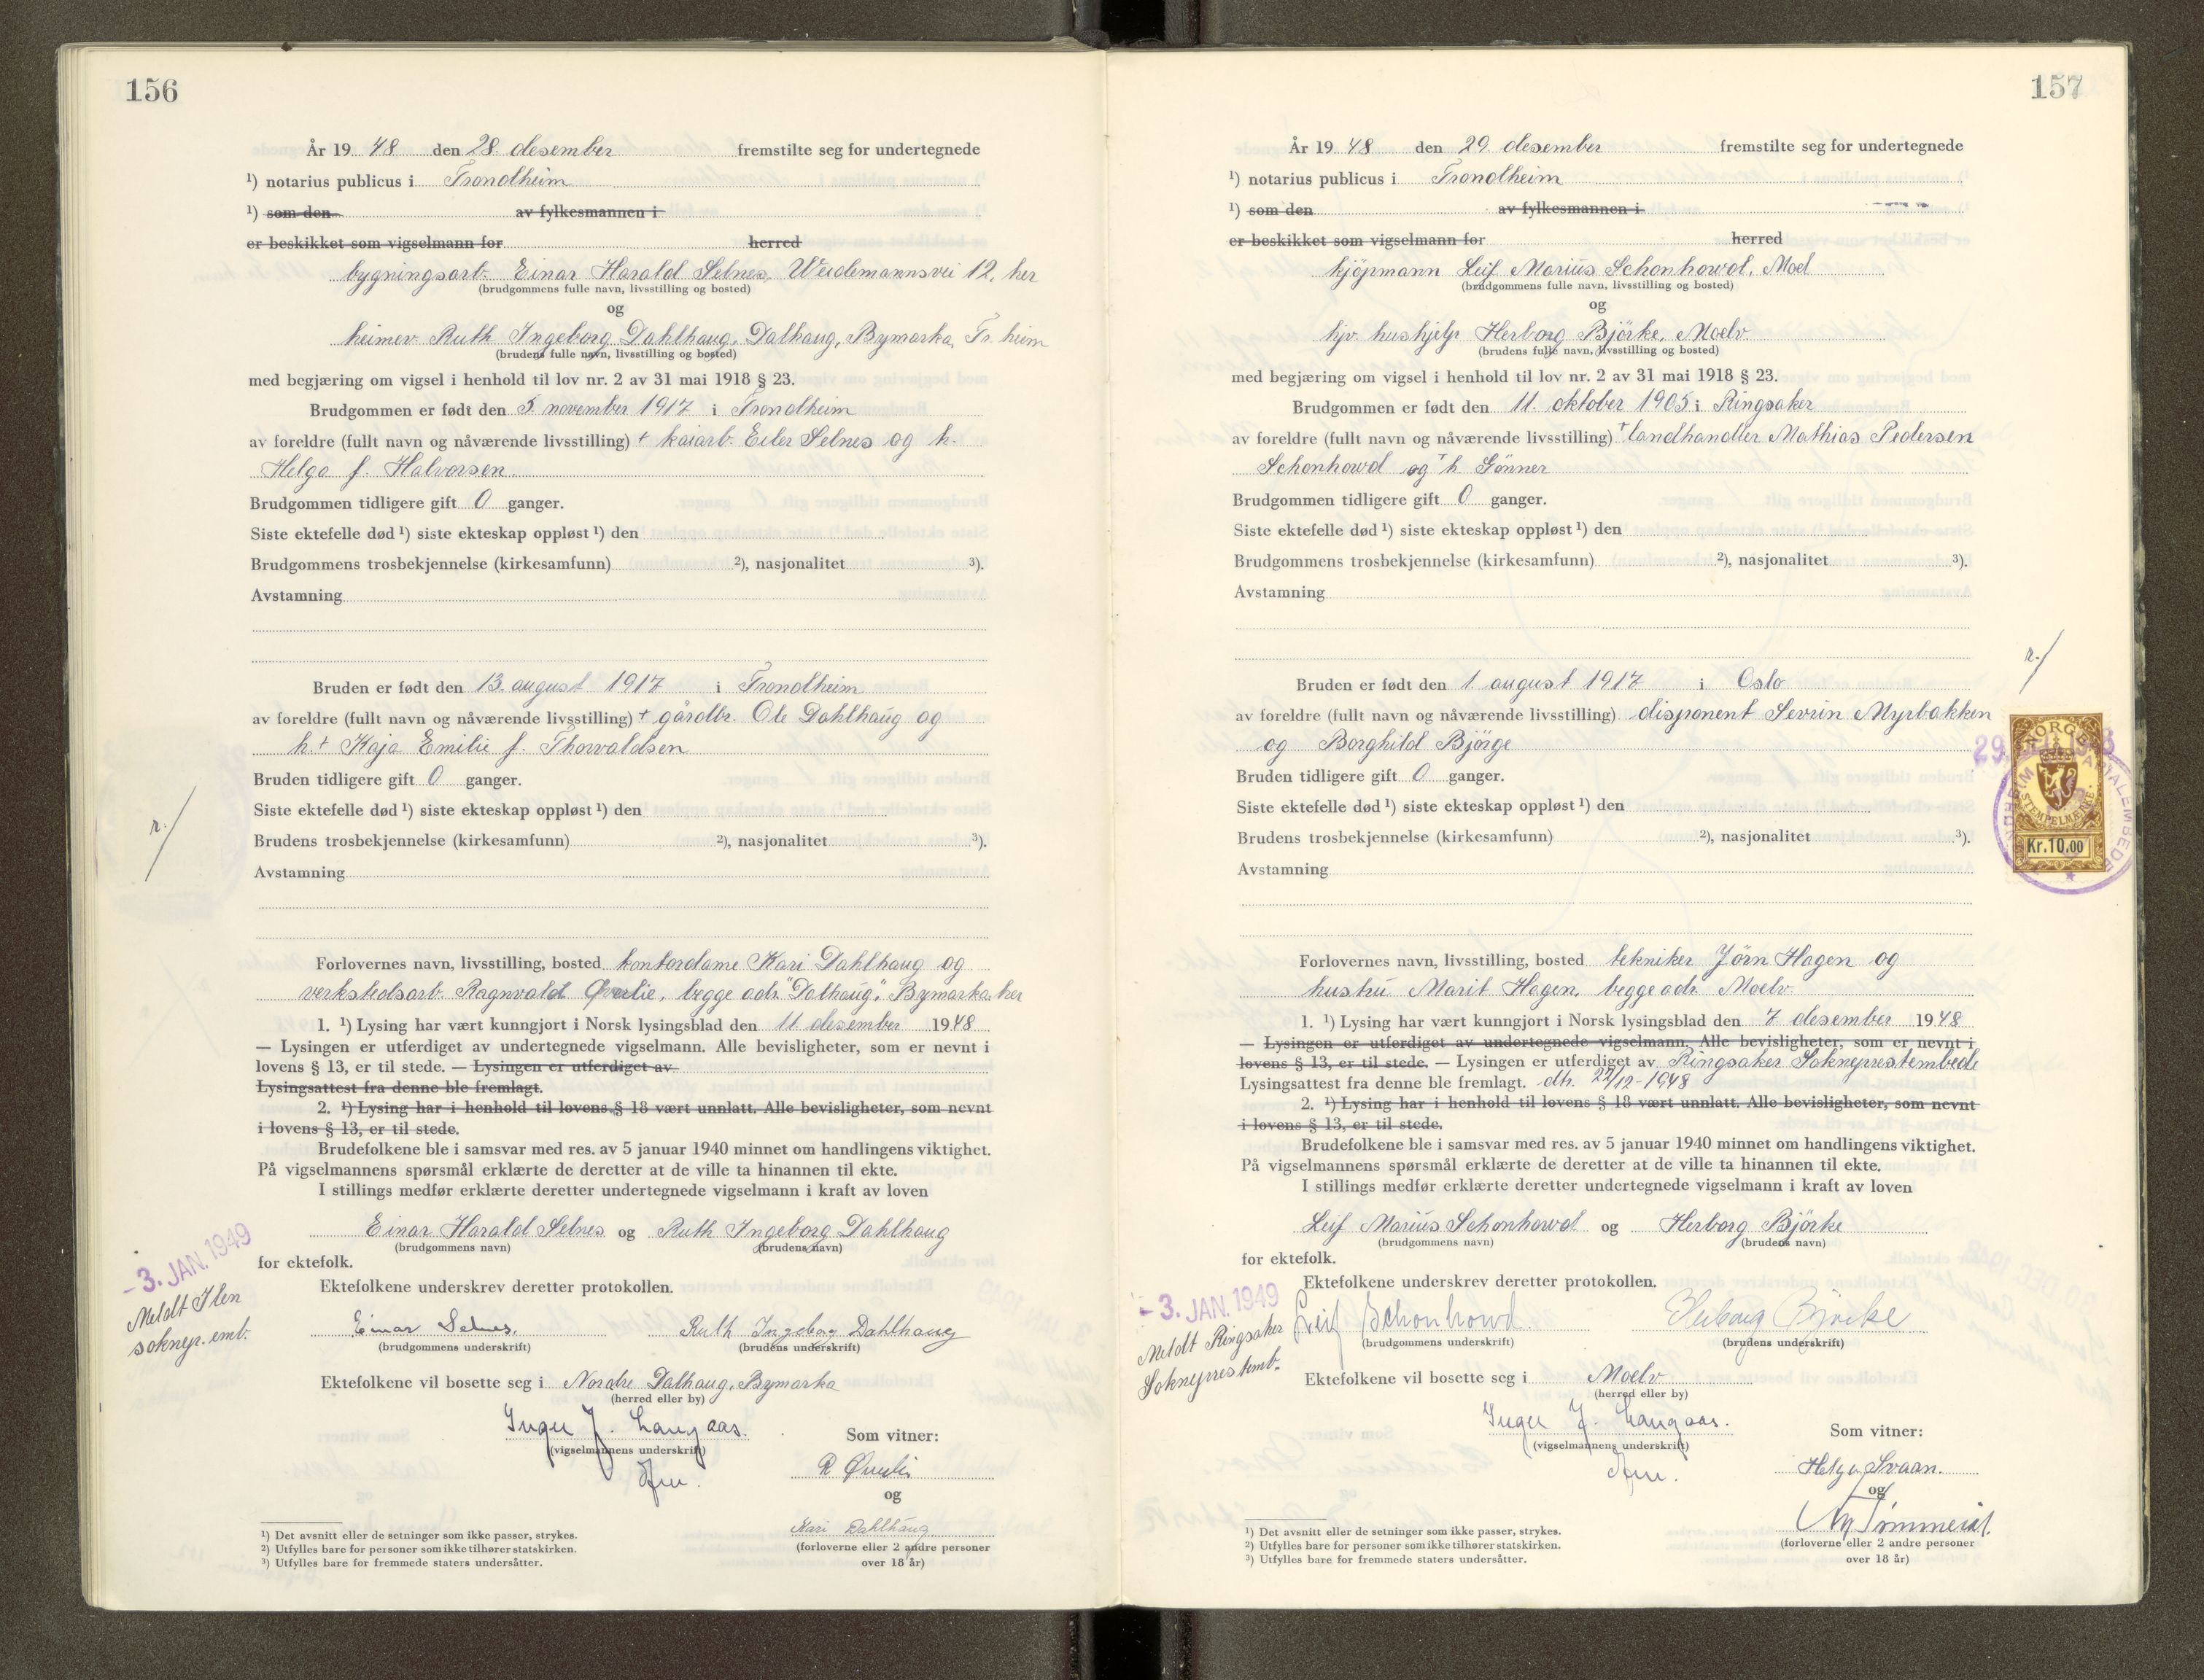 156
År 19 48 den 28. desember fremstilte seg for undertegnede
¹) notarius publicus i Trondheim
¹) som den av fylkesmannen i
er beskikket som vigselmann for herred
bygningsarb. Einar Harald Selnes, Weidemannsvei 12, her
(brudgommens fulle navn, livsstilling og bosted)
og
heimev. Ruth Ingeborg Dahlhaug, Dalhaug, Bymarka, Tr.heim
(brudens fulle navn, livsstilling og bosted)
med begjæring om vigsel i henhold til lov nr. 2 av 31 mai 1918 § 23.
Brudgommen er født den 5. november 1917 i Trondheim
av foreldre (fullt navn og nåværende livsstilling) + kaiarb. Eiler Selnes og h.
Helga f. Halvorsen.
Brudgommen tidligere gift 0 ganger.
Siste ektefelle død ¹) siste ekteskap oppløst ¹) den
Brudgommens trosbekjennelse (kirkesamfunn) ²), nasjonalitet ³).
Avstamning
Bruden er født den 13. august 1917 i Trondheim
av foreldre (fullt navn og nåværende livsstilling) + gårdbr. Ole Dahlhaug og
h. + Kaja Emilie f. Thorvaldsen
Bruden tidligere gift 0 ganger.
Siste ektefelle død ¹) siste ekteskap oppløst ¹) den
Brudens trosbekjennelse (kirkesamfunn) ²), nasjonalitet ³).
Avstamning
r./
Forlovernes navn, livsstilling, bosted kontordame Kari Dahlhaug og
verkstedsarb. Ragnvald Øverlie, begge adr. "Dalhaug", Bymarka, her
1. ¹) Lysing har vært kunngjort i Norsk lysingsblad den 11. desember 1948
— Lysingen er utferdiget av undertegnede vigselmann. Alle bevisligheter, som er nevnt i
lovens § 13, er til stede. — Lysingen er utferdiget av
Lysingsattest fra denne ble fremlagt.
2. ¹) Lysing har i henhold til lovens § 18 vært unnlatt. Alle bevisligheter, som nevnt
i lovens § 13, er til stede.
Brudefolkene ble i samsvar med res. av 5 januar 1940 minnet om handlingens viktighet.
På vigselmannens spørsmål erklærte de deretter at de ville ta hinannen til ekte.
I stillings medfør erklærte deretter undertegnede vigselmann i kraft av loven
Einar Harald Selnes og Ruth Ingeborg Dahlhaug
(brudgommens navn) (brudens navn)
for ektefolk.
Ektefolkene underskrev deretter protokollen.
- 3. JAN. 1949
Meldt Ilen
soknepr. emb.
Einar Selnes. Ruth Ingeborg Dahlhaug
(brudgommens underskrift) (brudens underskrift)
Ektefolkene vil bosette seg i Nordre Dalhaug, Bymarka
(herred eller by)
Inger J. Langaas.
(vigselmannens underskrift)
Som vitner:
R Øverlie
og
Kari Dahlhaug
(forloverne eller 2 andre personer
over 18 år)
¹) Det avsnitt eller de setninger som ikke passer, strykes.
²) Utfylles bare for personer som ikke tilhører statskirken.
³) Utfylles bare for fremmede staters undersåtter.
157
År 19 48 den 29. desember fremstilte seg for undertegnede
¹) notarius publicus i Trondheim
¹) som den av fylkesmannen i
er beskikket som vigselmann for herred
kjøpmann Leif Marius Schonhowd, Moel
(brudgommens fulle navn, livsstilling og bosted)
og
hjv. hushjelp Herborg Björke, Moelv.
(brudens fulle navn, livsstilling og bosted)
med begjæring om vigsel i henhold til lov nr. 2 av 31 mai 1918 § 23.
Brudgommen er født den 11. oktober 1905 i Ringsaker
av foreldre (fullt navn og nåværende livsstilling) + landhandler Mathias Pedersen
Schonhowd og + h. Gönner
Brudgommen tidligere gift 0 ganger.
Siste ektefelle død ¹) siste ekteskap oppløst ¹) den
Brudgommens trosbekjennelse (kirkesamfunn) ²), nasjonalitet ³).
Avstamning
r./
Bruden er født den 1. august 1917 i Oslo
av foreldre (fullt navn og nåværende livsstilling) disponent Sevrin Myrbakken
og Borghild Bjørge
Bruden tidligere gift 0 ganger.
Siste ektefelle død ¹) siste ekteskap oppløst ¹) den
Brudens trosbekjennelse (kirkesamfunn) ²), nasjonalitet ³).
Avstamning
NORGE
STEMPELMERKE
Kr. 10.00
Forlovernes navn, livsstilling, bosted tekniker Jörn Hagen og
hustru Marit Hagen, begge adr. Moelv.
1. ¹) Lysing har vært kunngjort i Norsk lysingsblad den 7. desember 1948
— Lysingen er utferdiget av undertegnede vigselmann. Alle bevisligheter, som er nevnt i
lovens § 13, er til stede. — Lysingen er utferdiget av Ringsaker Sokneprestembede
Lysingsattest fra denne ble fremlagt. dtr. 22/12-1948
2. ¹) Lysing har i henhold til lovens § 18 vært unnlatt. Alle bevisligheter, som nevnt
i lovens § 13, er til stede.
Brudefolkene ble i samsvar med res. av 5 januar 1940 minnet om handlingens viktighet.
På vigselmannens spørsmål erklærte de deretter at de ville ta hinannen til ekte.
I stillings medfør erklærte deretter undertegnede vigselmann i kraft av loven
Leif Marius Schonhowd og Herborg Björke
(brudgommens navn) (brudens navn)
for ektefolk.
Ektefolkene underskrev deretter protokollen.
- 3. JAN. 1949
Meldt Ringsaker
Sokneprestemb.
Leif Schonhowd. Herborg Björke
(brudgommens underskrift) (brudens underskrift)
Ektefolkene vil bosette seg i Moelv
(herred eller by)
Inger J. Langaas.
(vigselmannens underskrift)
Som vitner:
Helga Svaan.
og
(forloverne eller 2 andre personer
over 18 år)
¹) Det avsnitt eller de setninger som ikke passer, strykes.
²) Utfylles bare for personer som ikke tilhører statskirken.
³) Utfylles bare for fremmede staters undersåtter.